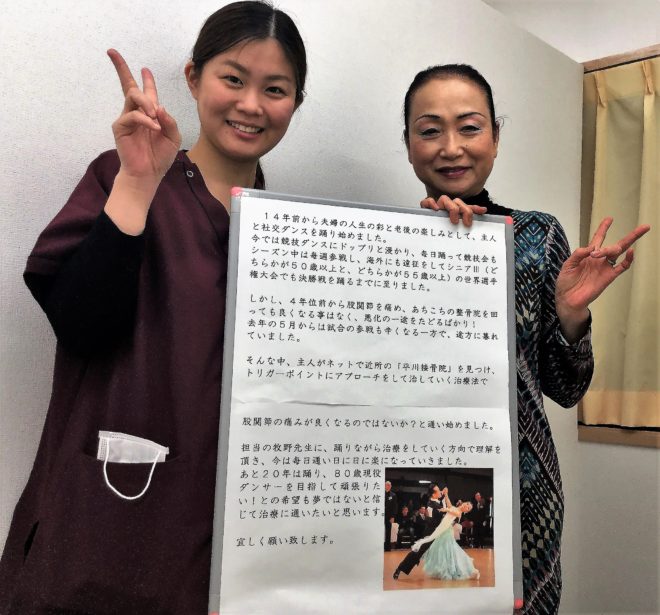 14年前から夫婦の人生の彩と老後の楽しみとして、主人
と社交ダンスを踊り始めました。
今では競技ダンスにドップリと浸かり、毎日踊って競技会も
シーズン中は毎週参戦し、海外にも遠征をしてシニアⅢ（ど
ちらかが50歳以上と、どちらかが55歳以上）の世界選手
権大会でも決勝戦を踊るまでに至りました。
しかし、4年位前から股関節を痛め、あちこちの整骨院を回
っても良くなる事はなく、悪化の一途をたどるばかり！
去年の5月からは試合の参戦も辛くなる一方で、途方に暮れ
ていました。
そんな中、主人がネットで近所の「平川接骨院」を見つけ、
トリガーポイントにアプローチをして治していく治療法で
股関節の痛みが良くなるのではないか？と通い始めました。
担当の牧野先生に、踊りながら治療をしていく方向で理解を
頂き、今は毎日通い日に日に楽になっていきました。
あと20年は踊り、80歳現役
ダンサーを目指して頑張りた
い！との希望も夢ではないと信
じて治療に通いたいと思います。
宜しく願い致します。